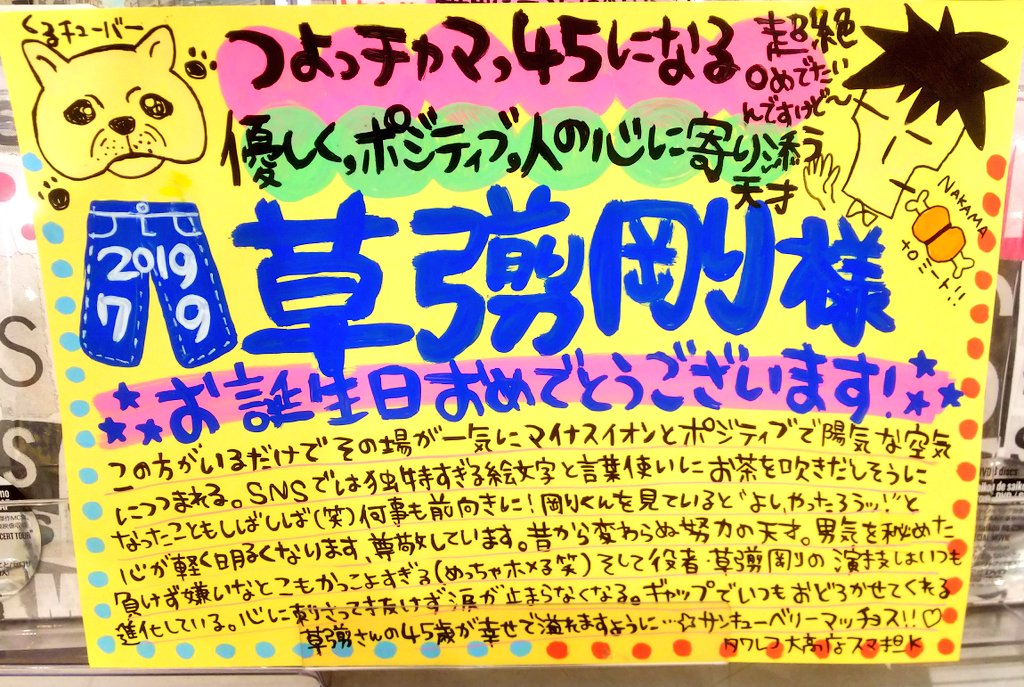 くるチューバー
つよっチャマっ45になる
超絶
〇めでたい
んですけど〜
優しく、ポジティブ。人の心に寄り添う
天才
2019
7 9
草彅剛様
NAKAMA
ナロミート!!
お誕生日おめでとうございます!
この方がいるだけでその場が一気にマイナスイオンとポジティブで陽気な空気
につつまれる。SNSでは独特すぎる絵文字と言葉使いにお茶を吹きだしそうに
なったこともしばしば(笑)何事も前向きに!剛くんを見ていると"よしやったろうッ!!"と
心が軽く明るくなります、尊敬しています。昔から変わらぬ努力の天才。男気を秘めた
負けず嫌いなとこもかっこよすぎる(めっちゃホメる笑)そして役者・草彅剛の演技はいつも
進化している。心に刺さって抜けず涙が止まらなくなる。ギャップでいつもおどろかせてくれる
草彅さんの45歳が幸せで溢れますように…☆サンキューベリーマッチョス!!♡
タワレコ大高店スマ担K